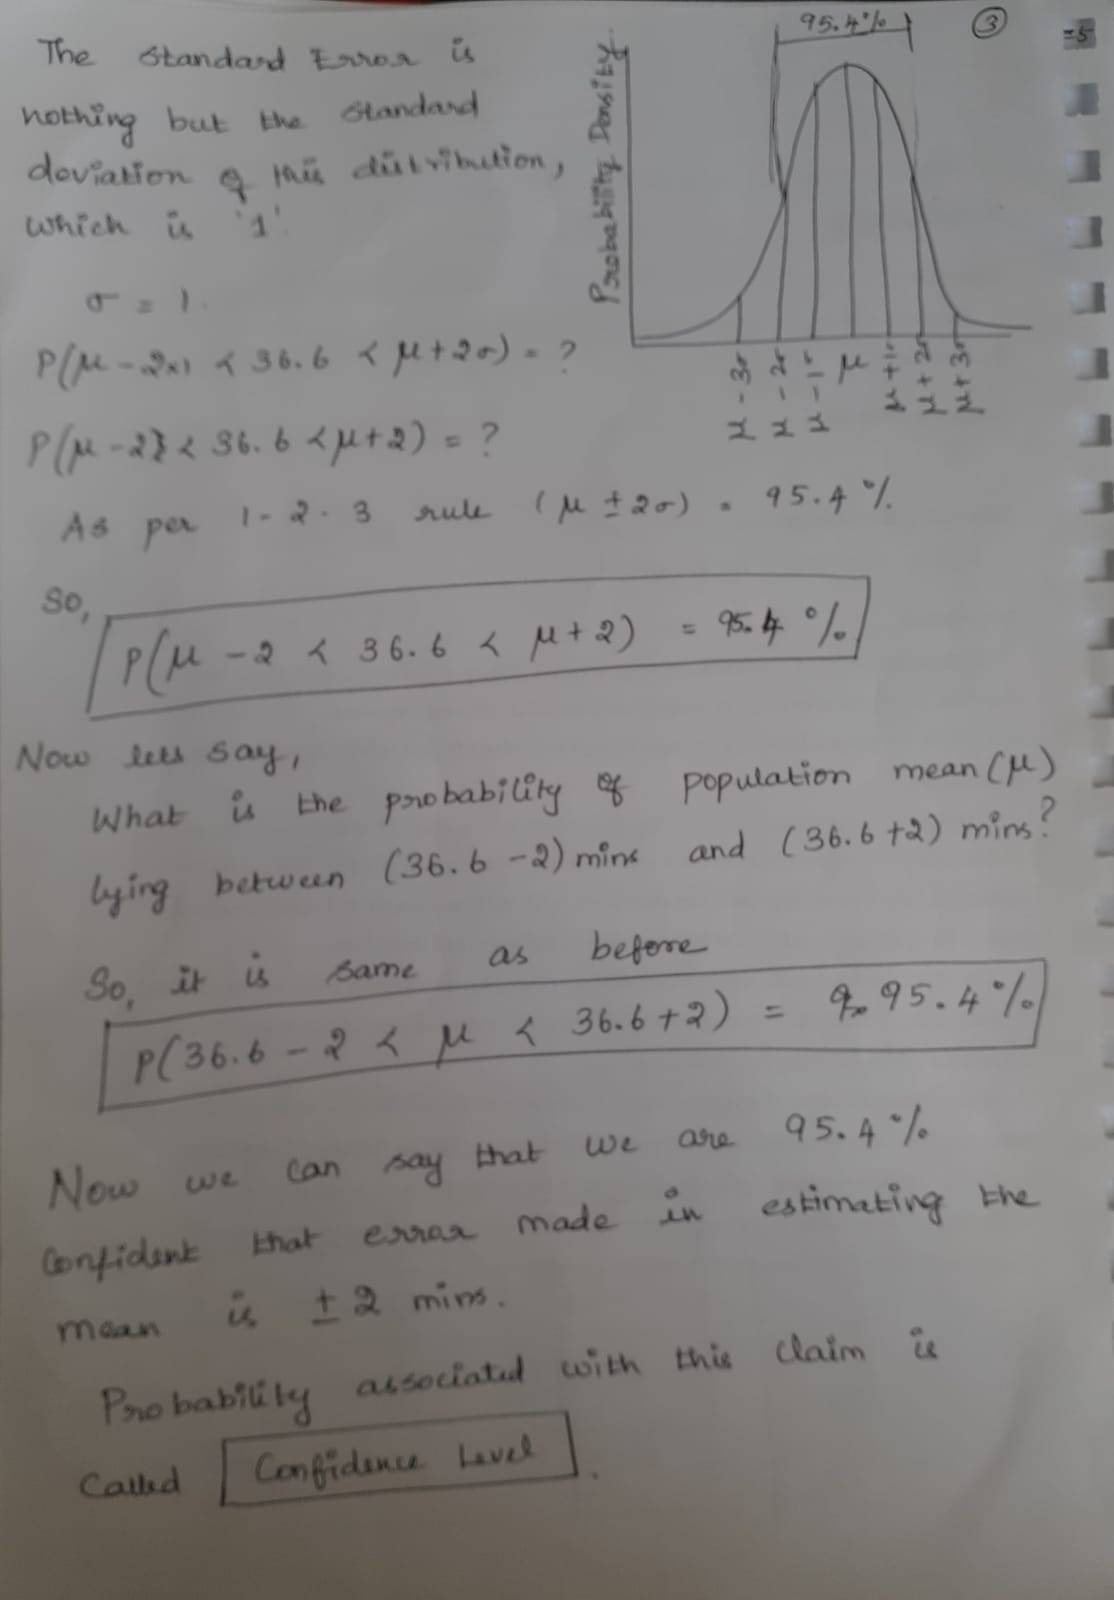 ③
The Standard Error is
nothing but the standard
deviation of this distribution,
which is '1'.
σ = 1.
95.4%
Probability Density
μ - 3σ
μ - 2σ
μ - 1σ
μ
μ + 1σ
μ + 2σ
μ + 3σ
P(μ - 2×1 < 36.6 < μ + 2σ) = ?
P(μ - 2} < 36.6 < μ + 2) = ?
As per 1-2-3 rule (μ ± 2σ) = 95.4%.
So,
P(μ - 2 < 36.6 < μ + 2) = 95.4%
Now lets say,
What is the probability of population mean (μ)
lying between (36.6 - 2) mins and (36.6 + 2) mins?
So, it is same as before
P(36.6 - 2 < μ < 36.6 + 2) = 95.4%
Now we can say that we are 95.4%
Confident that error made in estimating the
mean is ± 2 mins.
Probability associated with this claim is
Called Confidence Level.